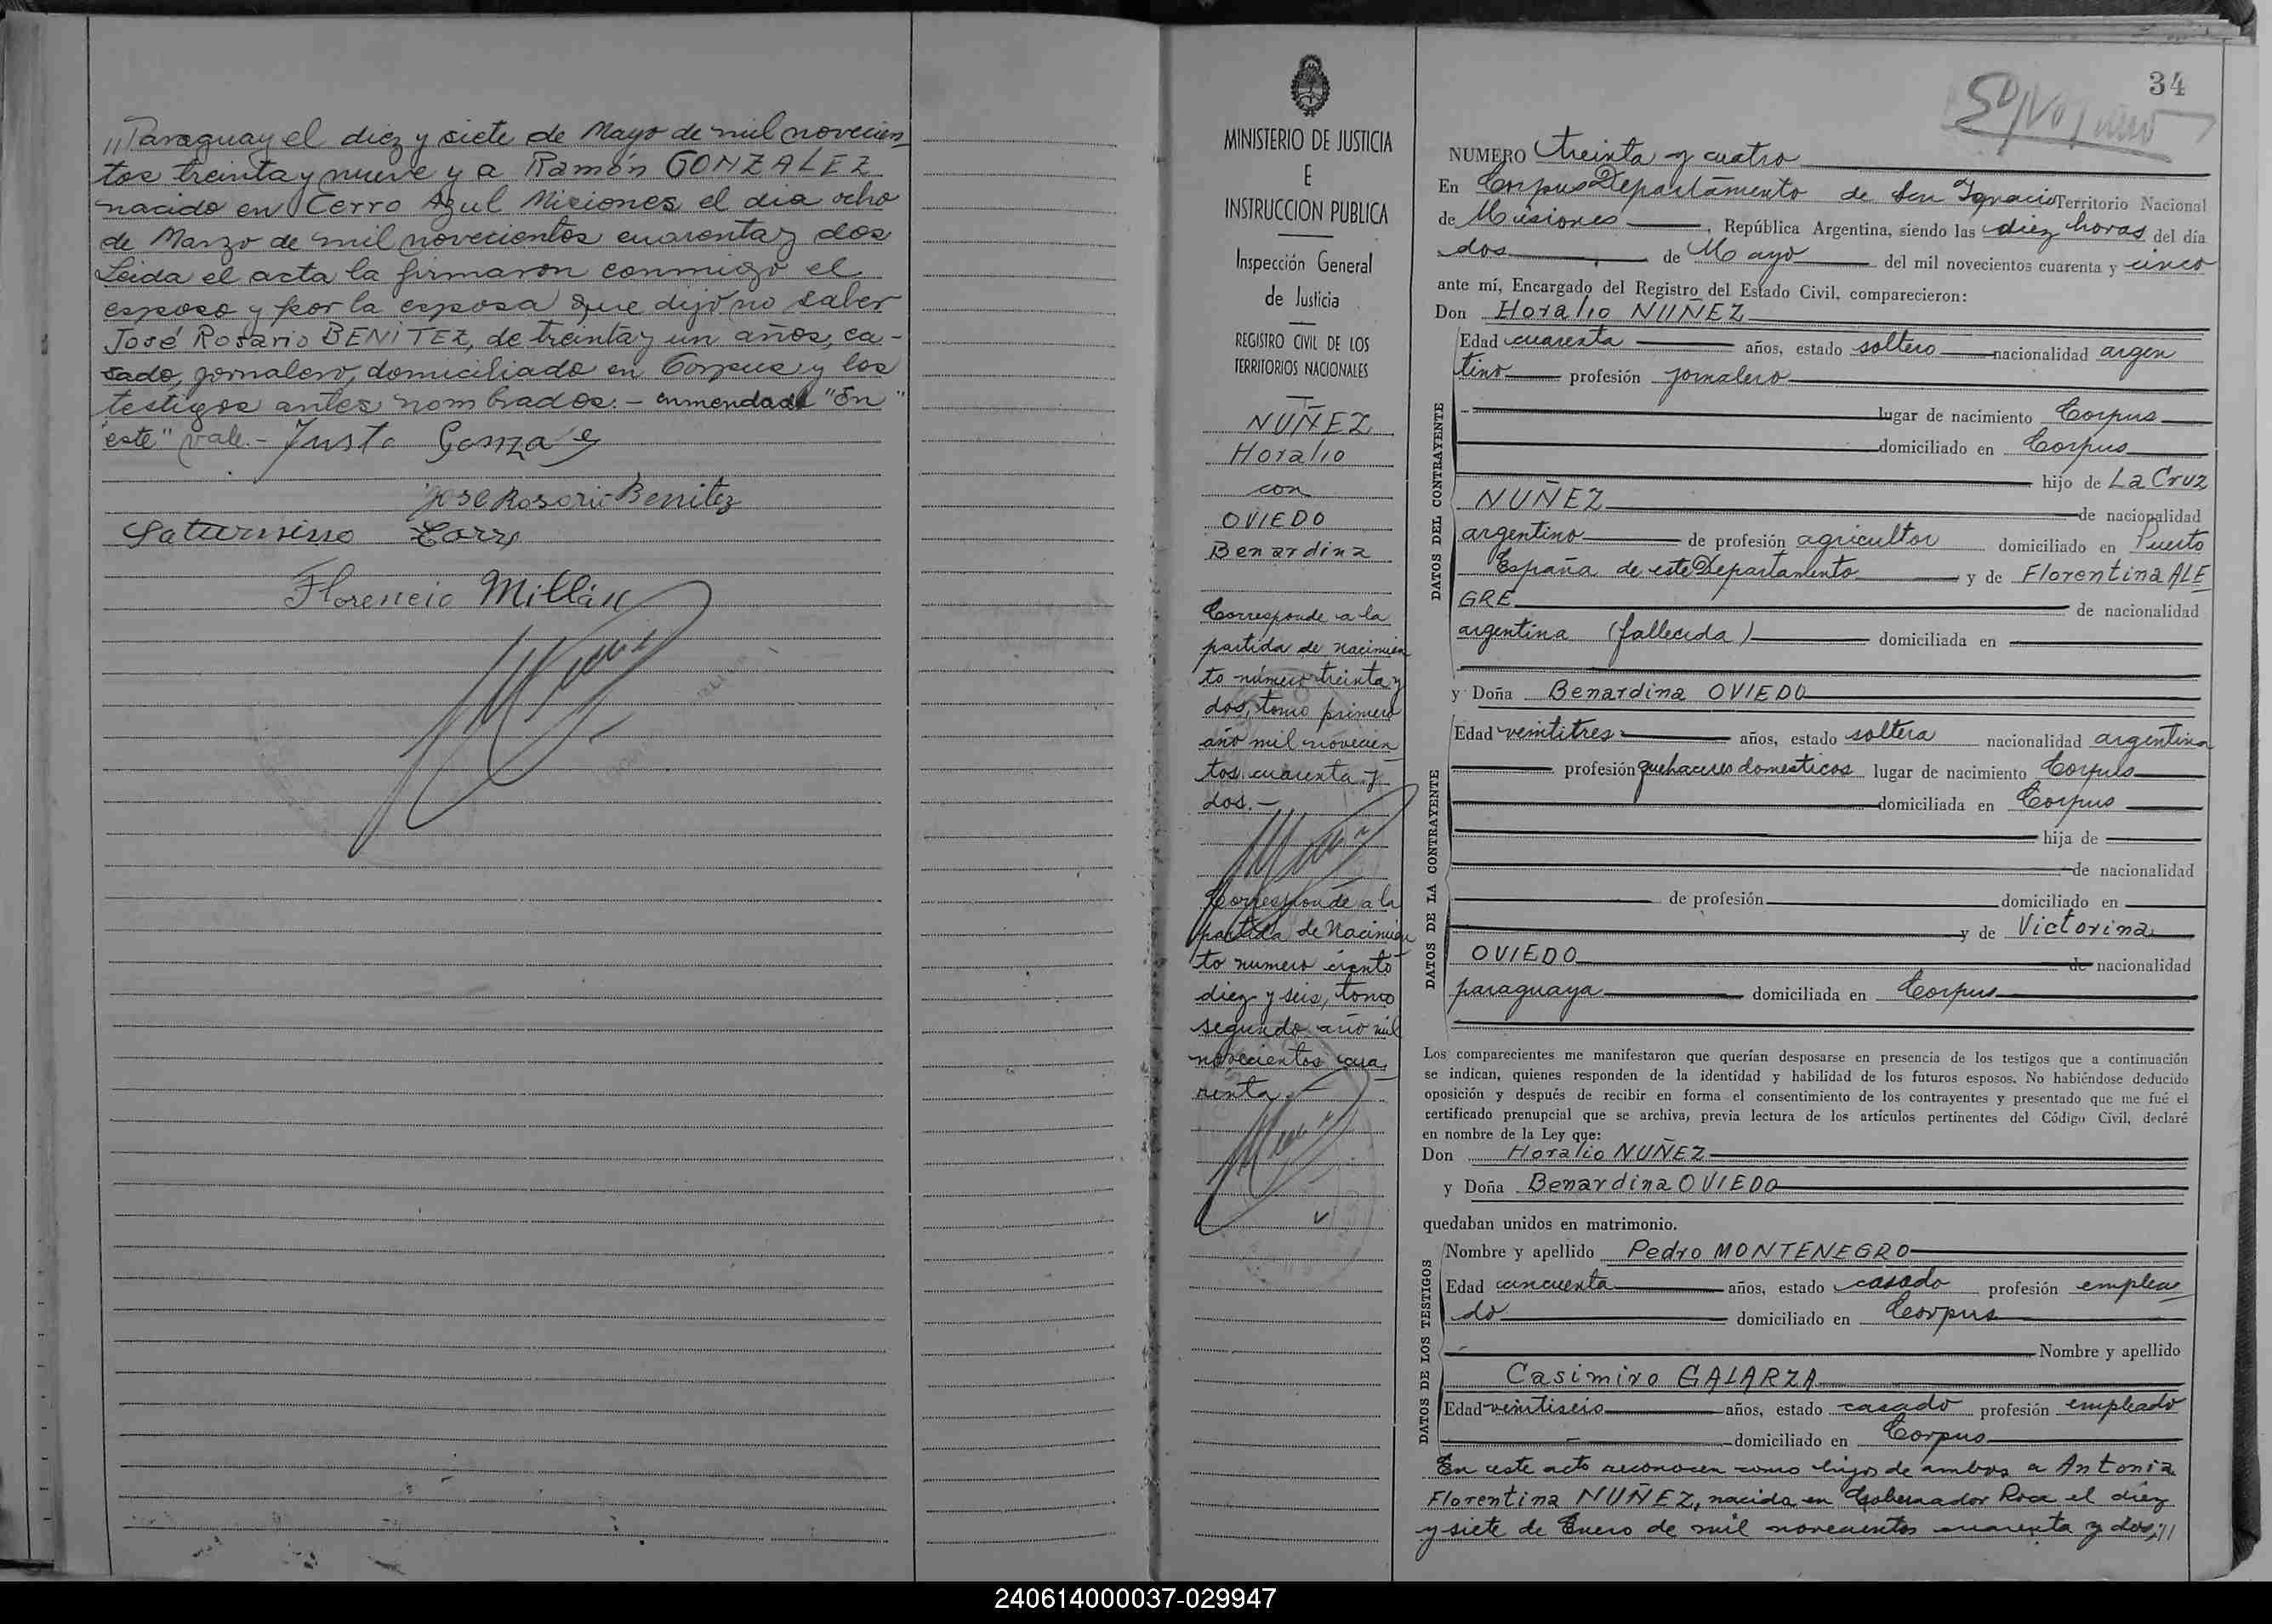 "Paraguay el diez y siete de Mayo de mil novecien
tos treinta y nueve y a Ramón GONZALEZ
nacido en Cerro Azul Misiones el dia ocho
de Marzo de mil novecientos cuarenta y dos
Leida el acta la firmaron conmigo el
esposo y por la esposa que dijo no saber
José Rosario BENITEZ, de treinta y un años, ca-
sado, jornalero, domiciliado en Corpus y los
testigos antes nombrados.- enmendado "En"
"este" vale.- Justo Gonzalez
Jose Rosario Benitez
Saturnino
Florencio Millán
MINISTERIO DE JUSTICIA
E
INSTRUCCION PUBLICA
Inspección General
de Justicia
REGISTRO CIVIL DE LOS
TERRITORIOS NACIONALES
NUÑEZ
Horalio
con
OVIEDO
Benardina
Corresponde a la
partida de nacimien
to número treinta y
dos, tomo primero
año mil novecien
tos cuarenta y
dos.-
Corresponde a la
partida de Nacimien
to numero ciento
diez y seis, tomo
segundo año mil
novecientos cua
renta
34
NUMERO treinta y cuatro
En Corpus Departamento de San Ignacio Territorio Nacional
de Misiones, República Argentina, siendo las diez horas del día
dos de Mayo del mil novecientos cuarenta y cinco
ante mí, Encargado del Registro del Estado Civil, comparecieron:
Don Horalio NUÑEZ
DATOS DEL CONTRAYENTE
Edad cuarenta años, estado soltero nacionalidad argen
tino profesión jornalero
lugar de nacimiento Corpus
domiciliado en Corpus
hijo de La Cruz
NUÑEZ de nacionalidad
argentino de profesión agricultor domiciliado en Puerto
España de este Departamento y de Florentina ALE
GRE de nacionalidad
argentina (fallecida) domiciliada en
y Doña Benardina OVIEDO
DATOS DE LA CONTRAYENTE
Edad veintitres años, estado soltera nacionalidad argentina
profesión quehaceres domesticos lugar de nacimiento Corpus
domiciliada en Corpus
hija de
de nacionalidad
de profesión domiciliado en
y de Victorina
OVIEDO de nacionalidad
paraguaya domiciliada en Corpus
Los comparecientes me manifestaron que querían desposarse en presencia de los testigos que a continuación
se indican, quienes responden de la identidad y habilidad de los futuros esposos. No habiéndose deducido
oposición y después de recibir en forma el consentimiento de los contrayentes y presentado que me fué el
certificado prenupcial que se archiva, previa lectura de los artículos pertinentes del Código Civil, declaré
en nombre de la Ley que:
Don Horalio NUÑEZ
y Doña Benardina OVIEDO
quedaban unidos en matrimonio.
DATOS DE LOS TESTIGOS
Nombre y apellido Pedro MONTENEGRO
Edad cincuenta años, estado casado profesión emplea
do domiciliado en Corpus
Nombre y apellido
Casimiro GALARZA
Edad veintiseis años, estado casado profesión empleado
domiciliado en Corpus
En este acto reconocen como hijos de ambos a Antonia
Florentina NUÑEZ, nacida en Gobernador Roca el diez
y siete de Enero de mil novecientos cuarenta y dos;//
240614000037-029947